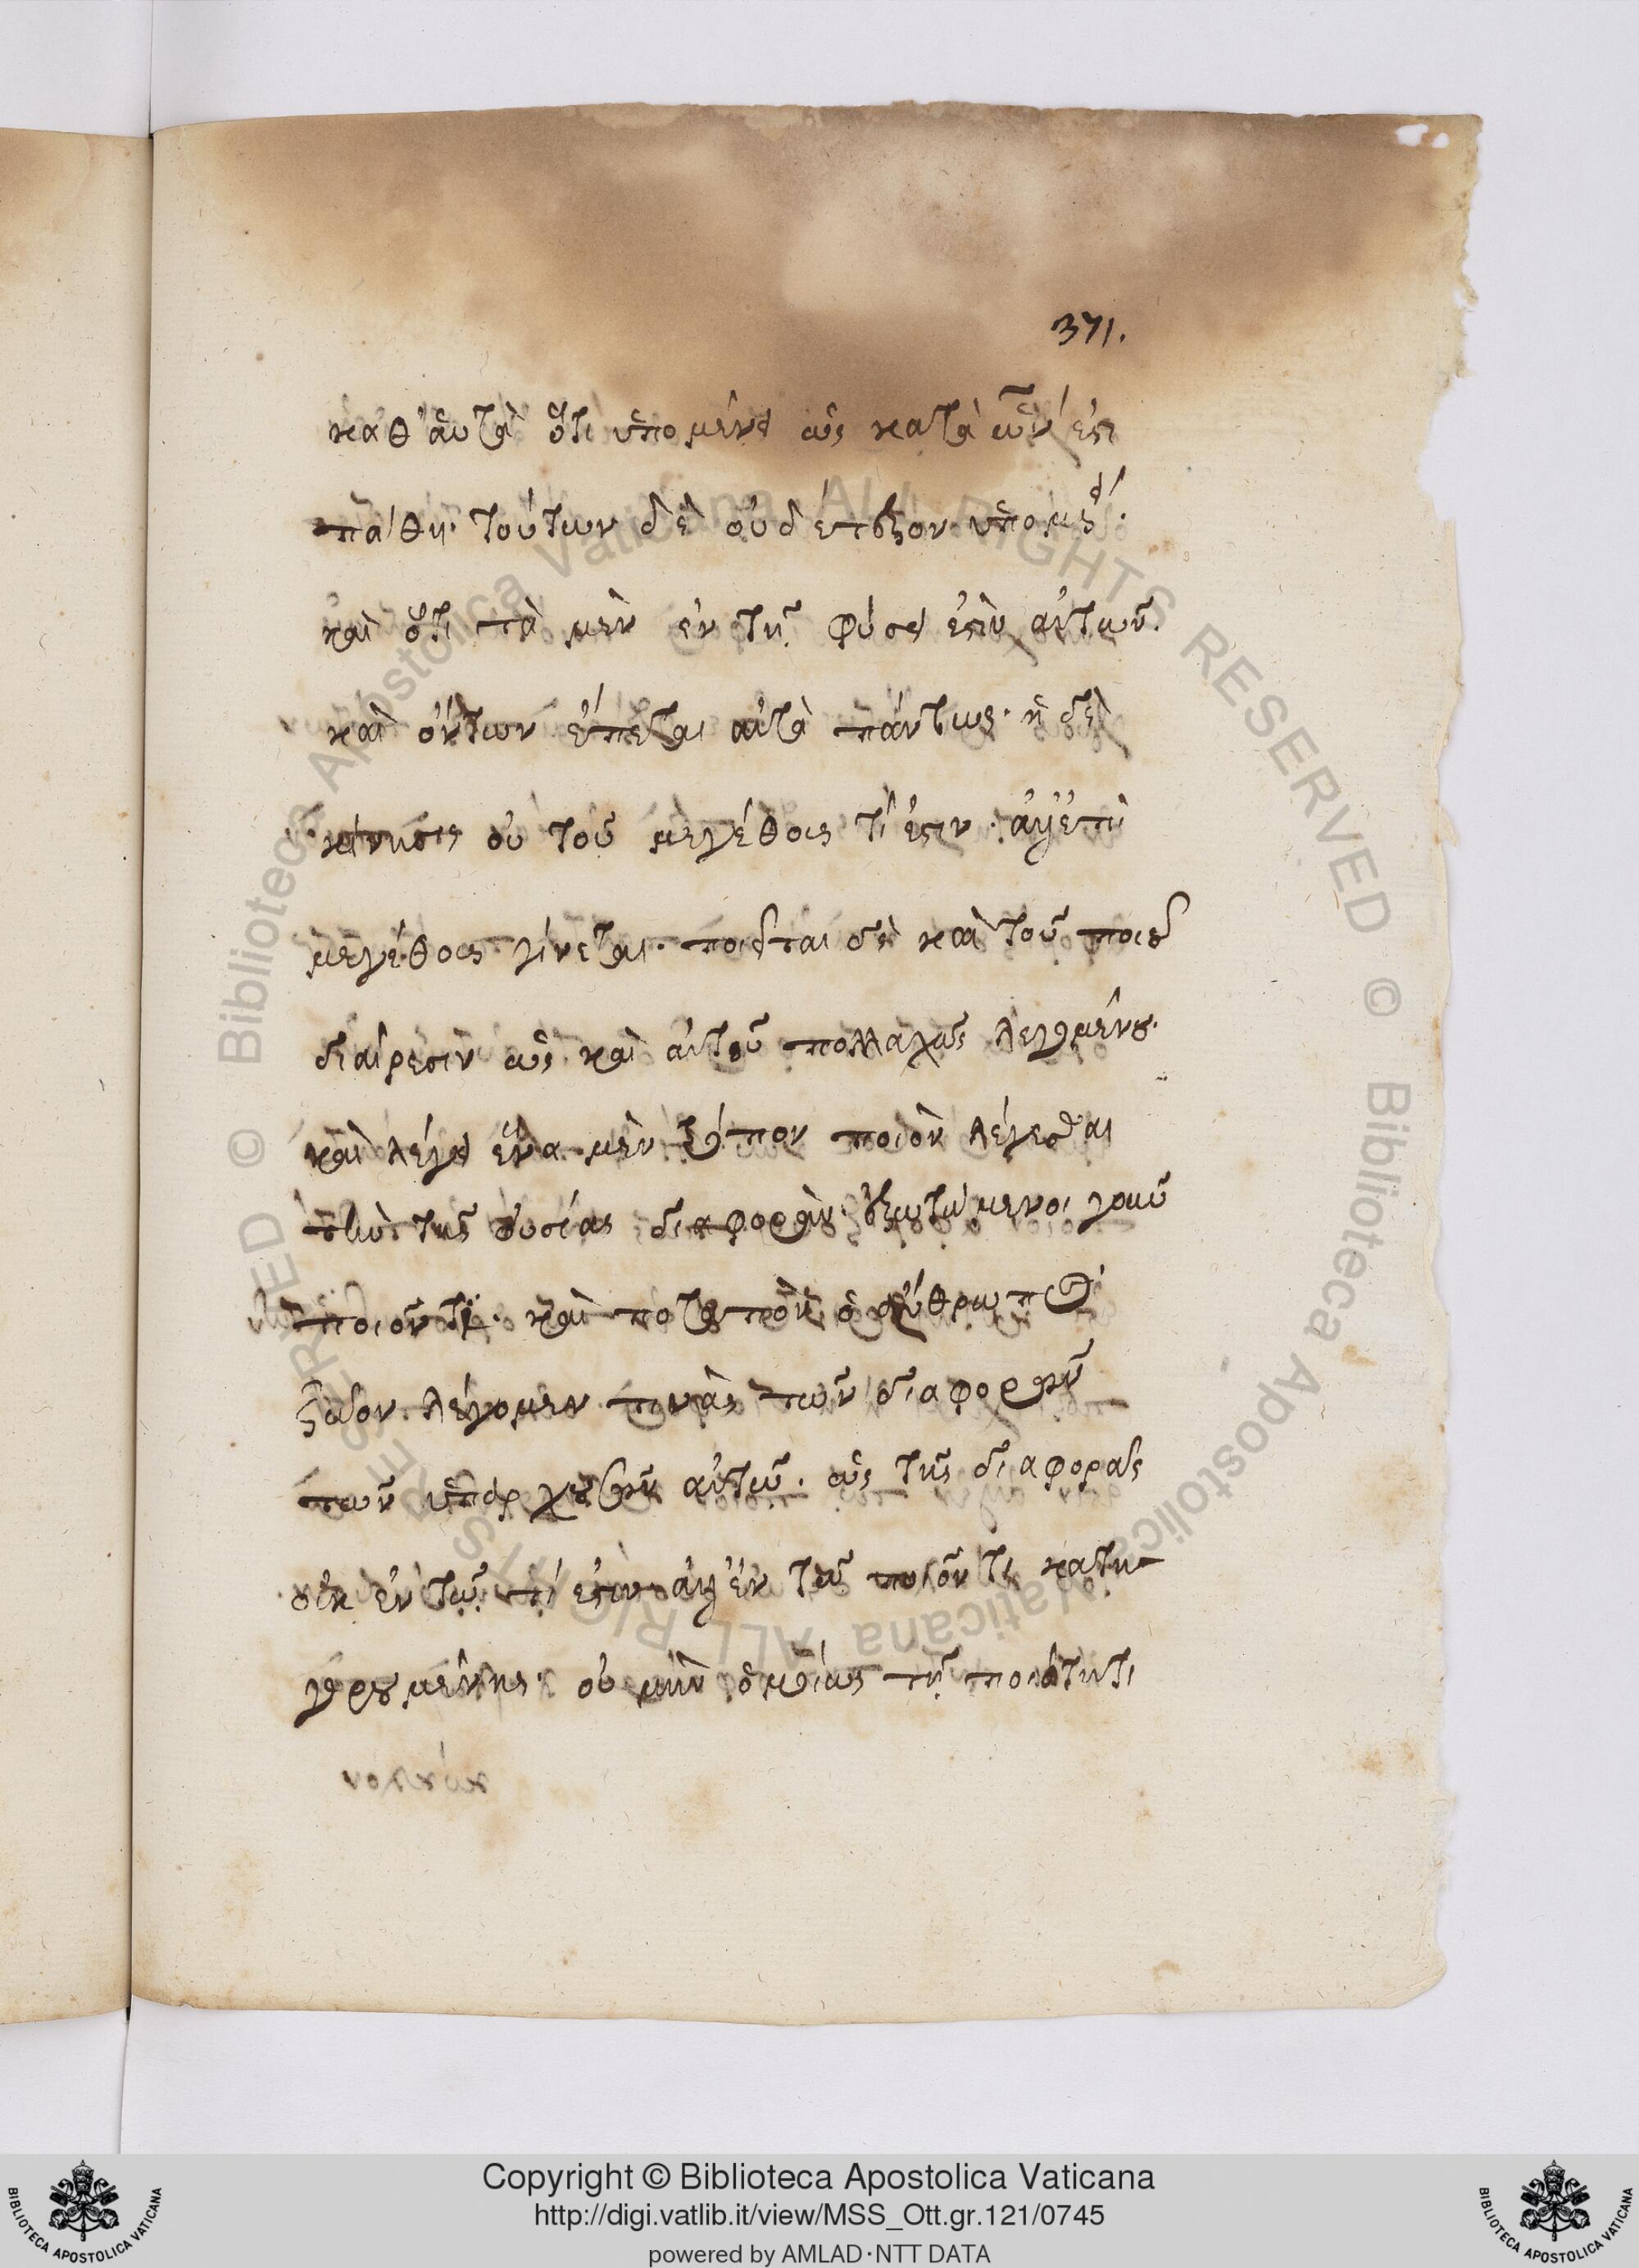 371.
καθ' αὑτὰ ὅτι ὑπομένει ὡς κατὰ ὧν ἐστι
πάθη· τούτων δὲ οὐδέτερον ὑπομένει·
καὶ ὅτι τὰ μὲν ἐν τῇ φύσει ἐστὶν αὐτῶν
καὶ ὄντων ἕπεται αὐτὰ πάντως· ἡ δὲ
κίνησις οὐ τοῦ μεγέθους τί ἐστιν· ἀλλ' ἐπὶ
μεγέθους γίνεται· ποιεῖται δὲ καὶ τοῦ ποιοῦ
διαίρεσιν ὡς καὶ αὐτοῦ πολλαχῶς λεγομένου·
καὶ λέγει ἕνα μὲν τρόπον ποιὸν λέγεσθαι
τὴν τῆς οὐσίας διαφορὰν· ἐρωτώμενοι γοῦν
ποιόν τι καὶ ποταπὸν ὁ ἄνθρωπος
ζῷον λέγομεν τινὰς τῶν διαφορῶν
τῶν ὑπαρχουσῶν αὐτῷ· ὡς τῆς διαφορᾶς
οὐκ ἐν τῷ τί ἐστιν ἀλλ' ἐν τῷ ποῖόν τι κατη-
γορουμένης· οὐ μὴν ὁμοίως τῇ ποιότητι
Copyright © Biblioteca Apostolica Vaticana
http://digi.vatlib.it/view/MSS_Ott.gr.121/0745
powered by AMLAD·NTT DATA
BIBLIOTECA APOSTOLICA VATICANA
BIBLIOTECA APOSTOLICA VATICANA
© Biblioteca Apostolica Vaticana ALL RIGHTS RESERVED © Biblioteca Apostolica Vaticana ALL RIGHTS RESERVED